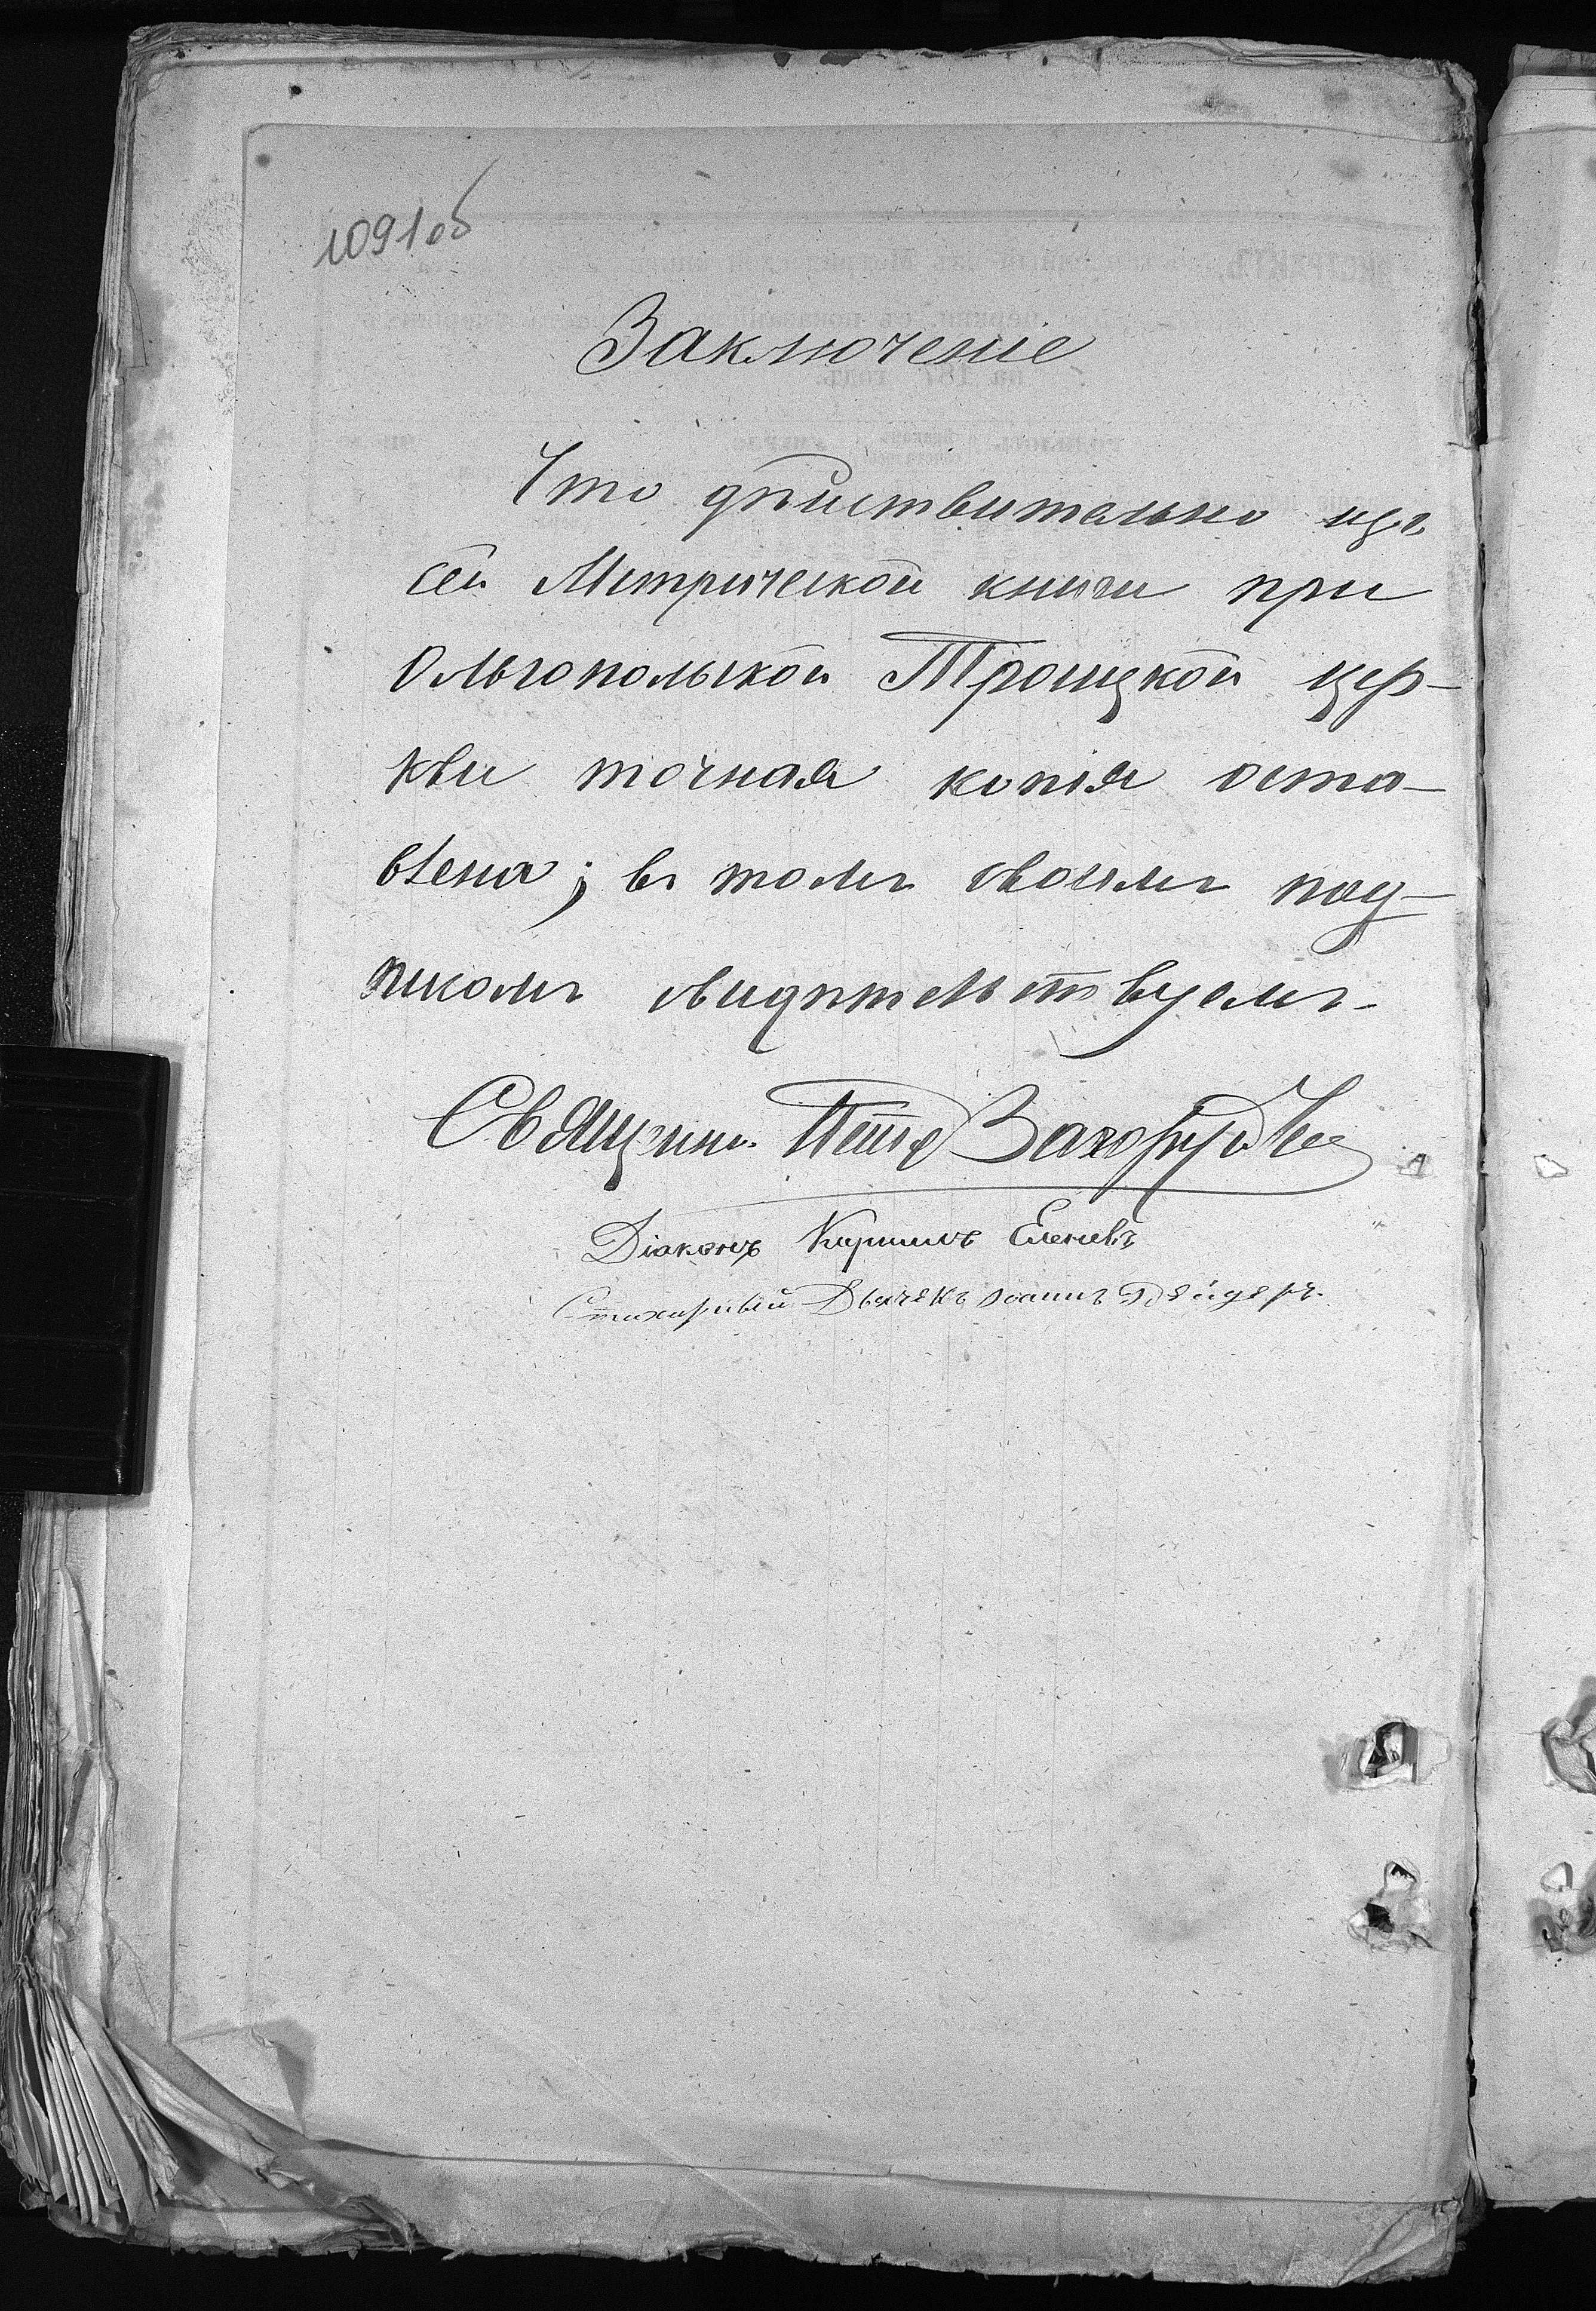 109 об
Заключеніе
Что дѣйствительно изъ
сей Метрической книги при
Ольгопольской Троицкой цер-
кви точная копія оста-
влена; въ томъ своимъ под-
писомъ свидѣтельствуемъ.
Священн. Петръ
Діаконъ Кириллъ
Стихарный Дьячекъ Іоаннъ